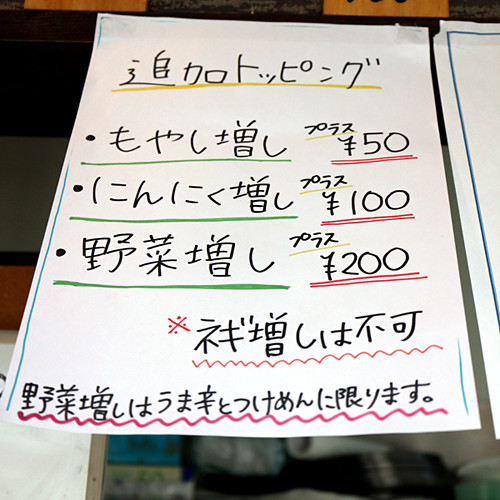 追加トッピング
・もやし増し プラス ¥50
・にんにく増し プラス ¥100
・野菜増し プラス ¥200
※ネギ増しは不可
野菜増しはうま辛とつけめんに限ります。